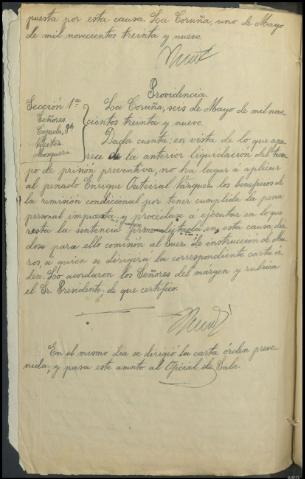 puesta por esta causa. La Coruña, uno de Mayo
de mil novecientos treinta y nueve.
Providencia.
Sección 1ª
Señores
Mosquera
La Coruña, seis de Mayo de mil nove
cientos treinta y nueve.
Dada cuenta; en vista de lo que apa
rece de la anterior liquidación del tiem
po de prisión preventiva, no ha lugar a aplicar
al penado Enrique Vázquez los beneficios de
la remisión condicional por tener cumplida la pena
personal impuesta, y procédase a ejecutar en lo que
resta la sentencia firme dictada en esta causa, dán
dose para ello comisión al Juez de instrucción de
a quien se dirigirá la correspondiente carta ór
den. Lo acordaron los Señores del margen y rubrica
el Sr. Presidente, de que certifico.
En el mismo día se dirigió la carta órden preve
nida, y pasa este asunto al Oficial de Sala.